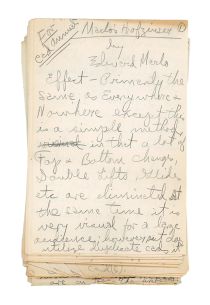 For
ccd manuscript
Marlo's Profziness ①
by
Edward Marlo
Effect - Primarily the
same as Everywhere &
Nowhere except this
is a simple method
in that a lot of
Top & Bottom Changes,
Double Lifts, Glides
etc are eliminated at
the same time it is
very visual for a large
audience; however, it does
utilize duplicate cards